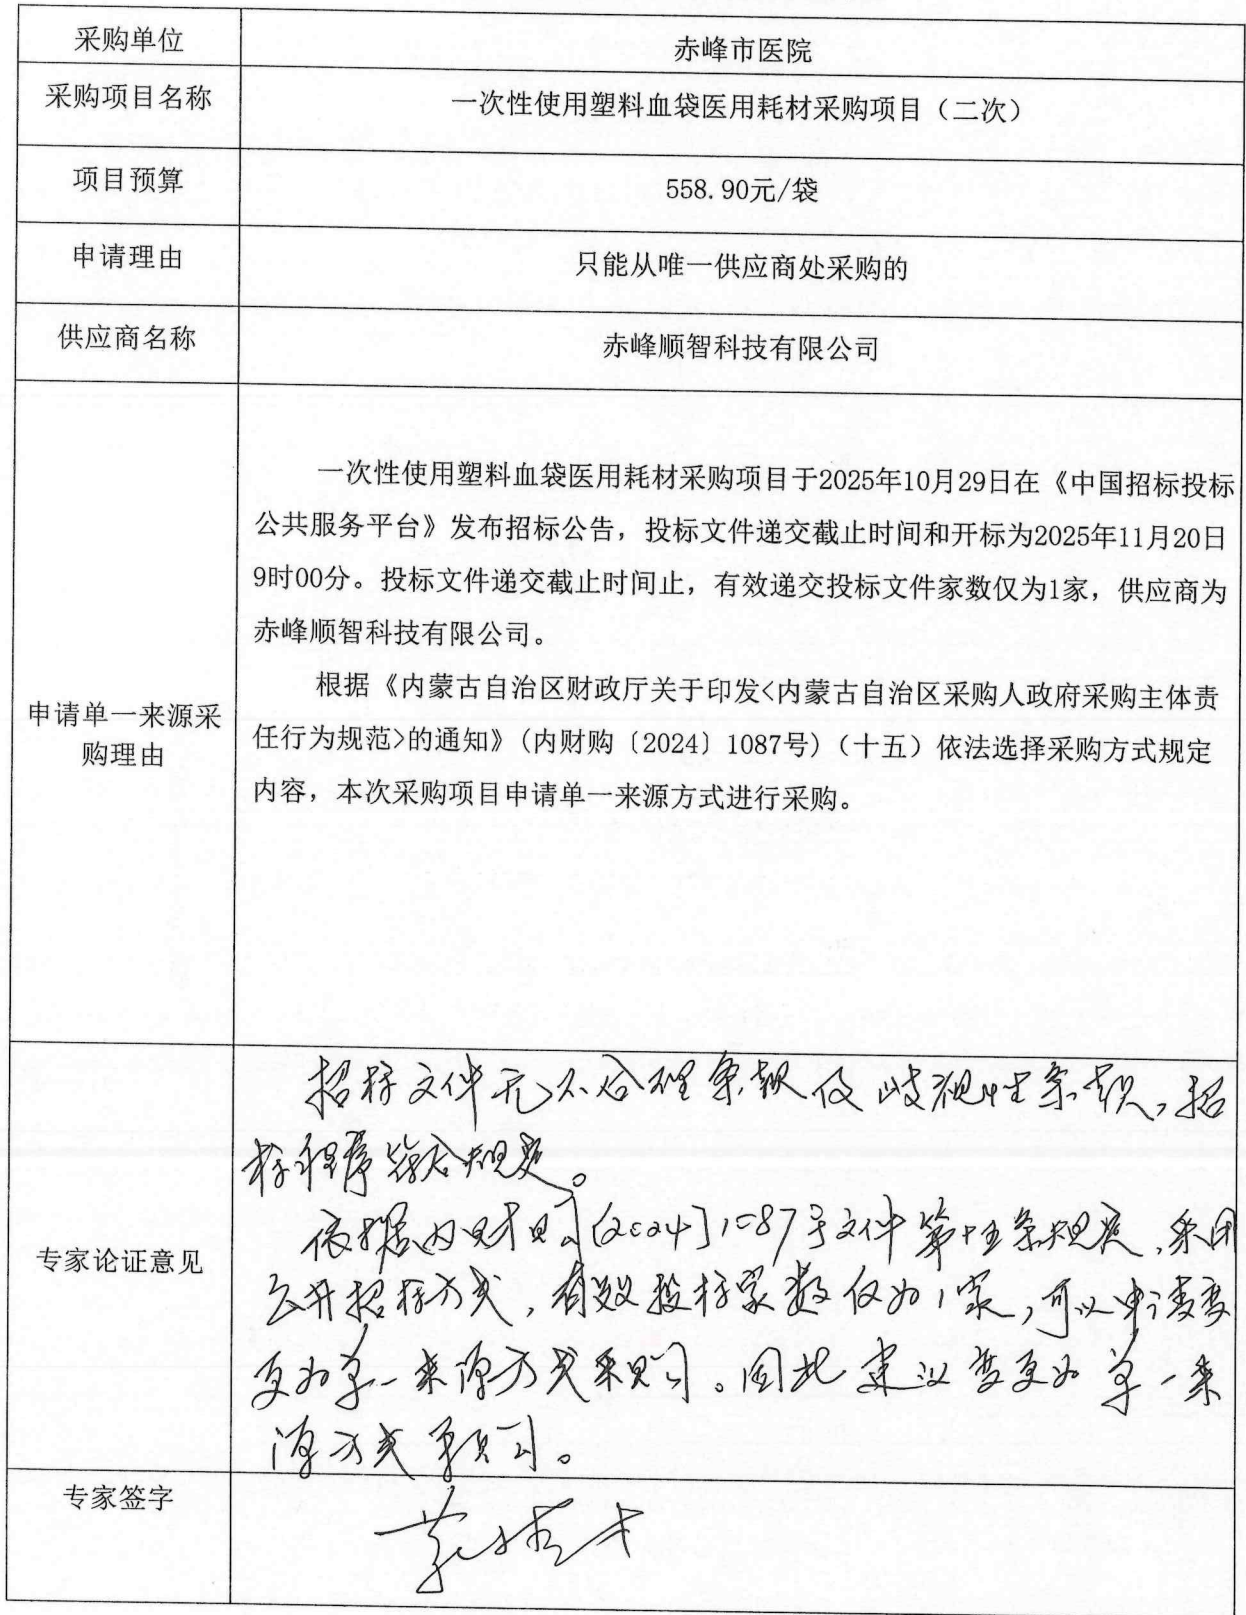 采购单位
赤峰市医院
采购项目名称
一次性使用塑料血袋医用耗材采购项目（二次）
项目预算
558.90元/袋
申请理由
只能从唯一供应商处采购的
供应商名称
赤峰顺智科技有限公司
申请单一来源采
购理由
一次性使用塑料血袋医用耗材采购项目于2025年10月29日在《中国招标投标
公共服务平台》发布招标公告，投标文件递交截止时间和开标为2025年11月20日
9时00分。投标文件递交截止时间止，有效递交投标文件家数仅为1家，供应商为
赤峰顺智科技有限公司。
根据《内蒙古自治区财政厅关于印发<内蒙古自治区采购人政府采购主体责
任行为规范>的通知》(内财购〔2024〕1087号)（十五）依法选择采购方式规定
内容，本次采购项目申请单一来源方式进行采购。
专家论证意见
招标文件无不合理条款及歧视性条款，招
标程序符合规定。
依据内财购[2024]1087号文件第十五条规定，采用
公开招标方式，有效投标家数仅为1家，可以申请变
更为单一来源方式采购。因此建议变更为单一来
源方式采购。
专家签字